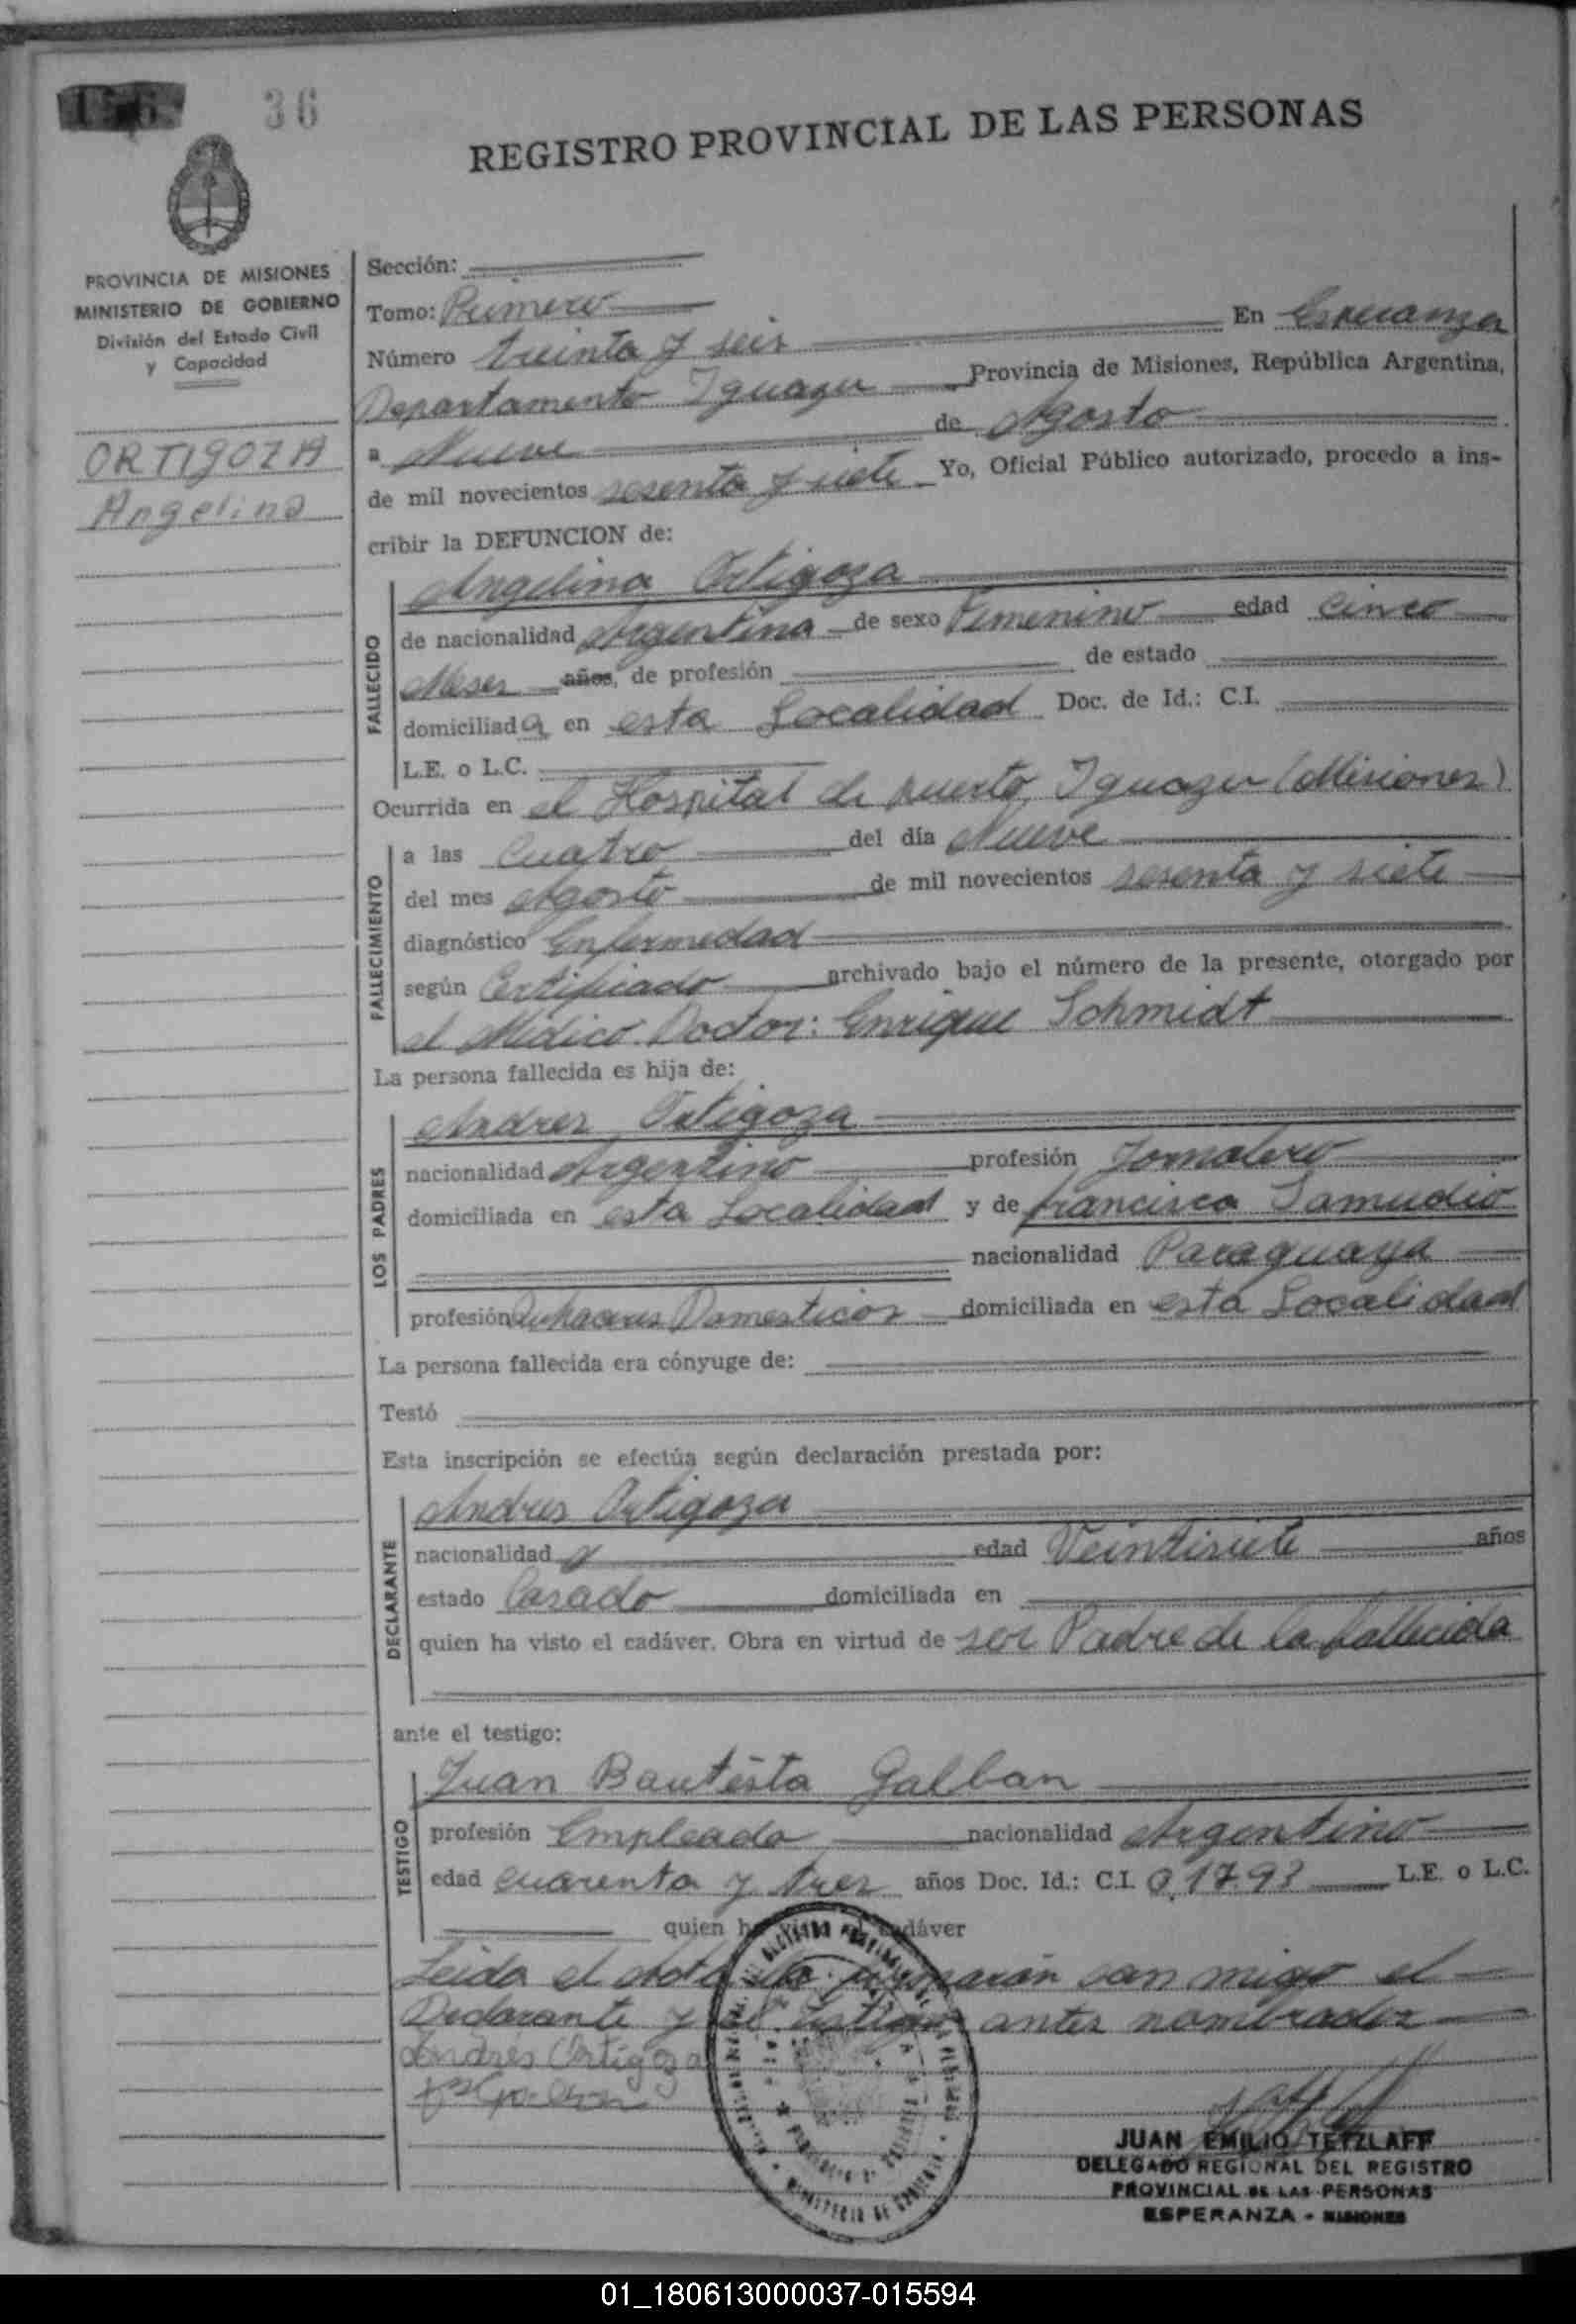 36
REGISTRO PROVINCIAL DE LAS PERSONAS
PROVINCIA DE MISIONES
MINISTERIO DE GOBIERNO
División del Estado Civil
y Capacidad
ORTIGOZA
Angelina
Sección:
Tomo: Primero
Número treinta y seis En Esperanza
Departamento Iguazu Provincia de Misiones, República Argentina,
a Nueve de Agosto
de mil novecientos sesenta y siete Yo, Oficial Público autorizado, procedo a ins-
cribir la DEFUNCION de:
FALLECIDO
Angelina Ortigoza
de nacionalidad Argentina de sexo Femenino edad cinco
Meses años, de profesión de estado
domiciliada en esta Localidad Doc. de Id.: C.I.
L.E. o L.C.
Ocurrida en el Hospital de puerto Iguazu (Misiones)
FALLECIMIENTO
a las cuatro del día Nueve
del mes Agosto de mil novecientos sesenta y siete
diagnóstico Enfermedad
según Certificado archivado bajo el número de la presente, otorgado por
el Médico Doctor: Enrique Schmidt
La persona fallecida es hija de:
LOS PADRES
Andres Ortigoza
nacionalidad Argentino profesión Jornalero
domiciliada en esta Localidad y de francisca Samudio
nacionalidad Paraguaya
profesión Quehaceres Domesticos domiciliada en esta Localidad
La persona fallecida era cónyuge de:
Testó
Esta inscripción se efectúa según declaración prestada por:
DECLARANTE
Andres Ortigoza
nacionalidad edad Veintisiete años
estado Casado domiciliada en
quien ha visto el cadáver. Obra en virtud de ser Padre de la fallecida
ante el testigo:
TESTIGO
Juan Bautista Galban
profesión Empleado nacionalidad Argentino
edad cuarenta y tres años Doc. Id.: C.I. 0,1793 L.E. o L.C.
quien ha visto el cadáver
Leida el Acta la firmarán conmigo el
Declarante y el testigo antes nombrados
Andres Ortigoza
JUAN EMILIO TETZLAFF
DELEGADO REGIONAL DEL REGISTRO
PROVINCIAL DE LAS PERSONAS
ESPERANZA - MISIONES
01_180613000037-015594